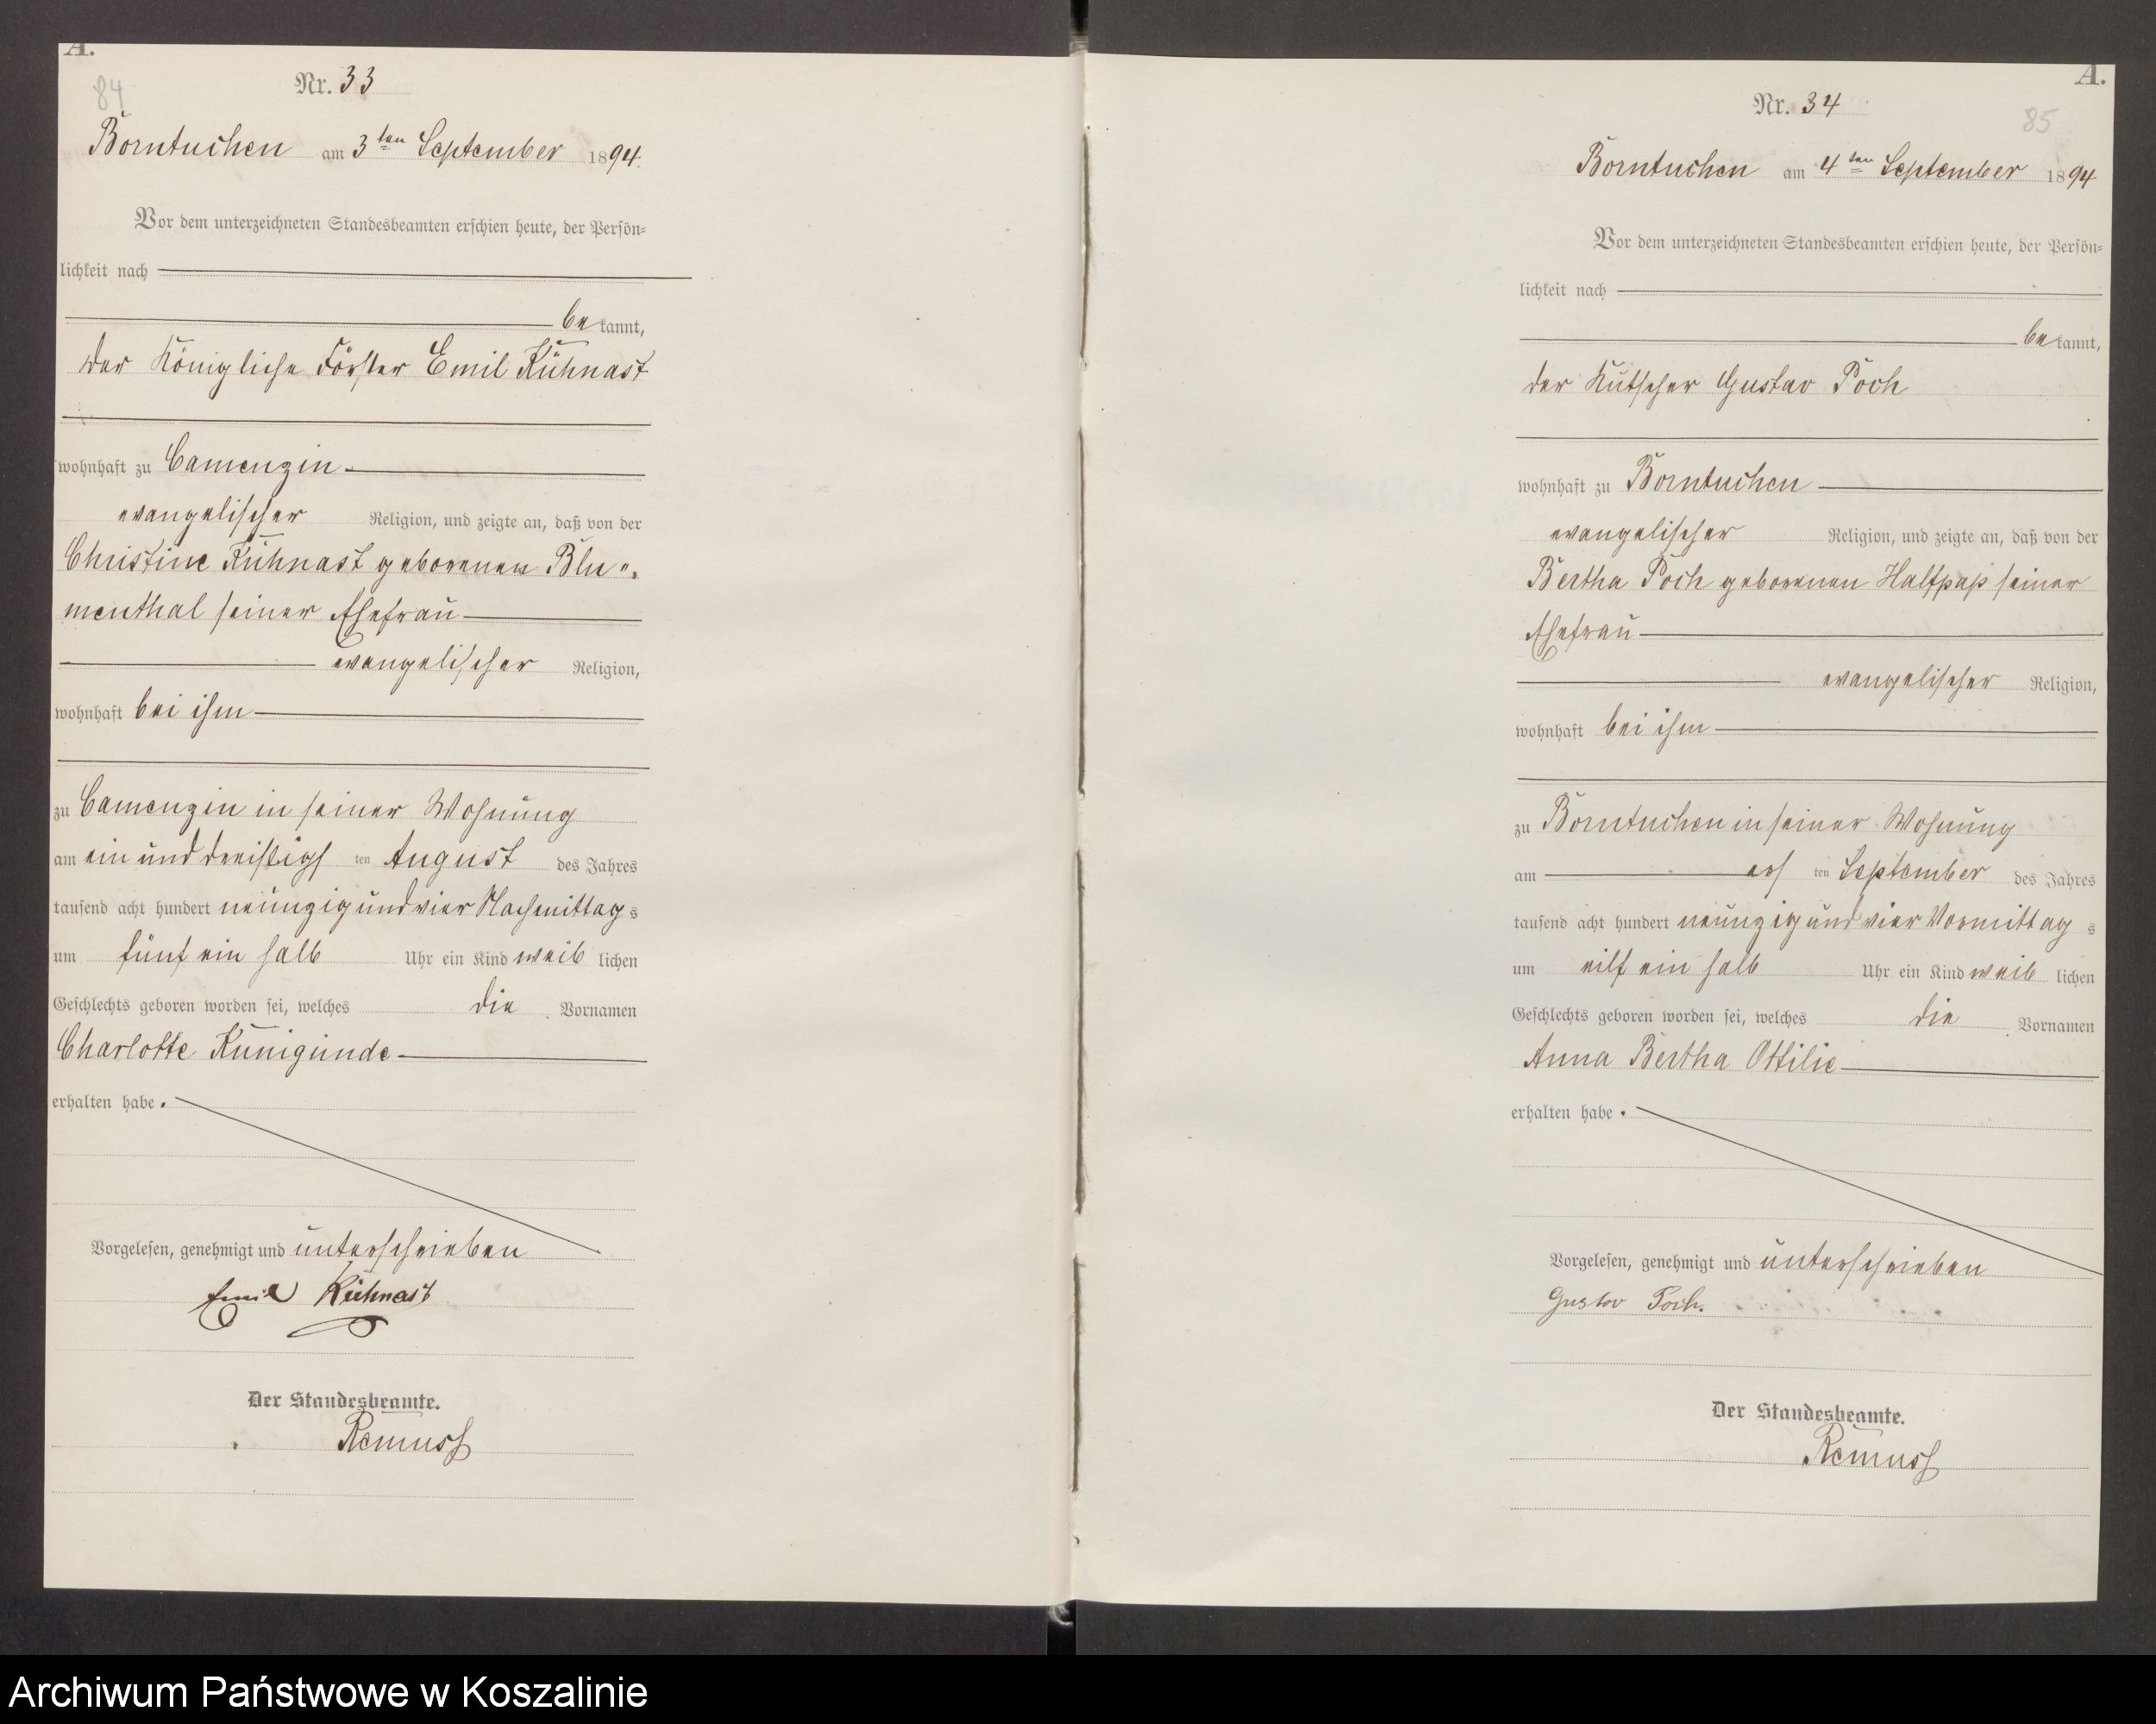 A.
84
Nr. 33
Borntuchen am 3ten September 1894.
Vor dem unterzeichneten Standesbeamten erschien heute, der Persön-
lichkeit nach
bekannt,
der Königliche Förster Emil Kühnast
wohnhaft zu Camenzin
evangelischer Religion, und zeigte an, daß von der
Christine Kühnast geborenen Blu-
menthal seiner Ehefrau
evangelischer Religion,
wohnhaft bei ihm
zu Camenzin in seiner Wohnung
am ein und dreißigsten August des Jahres
tausend acht hundert neunzig und vier Nachmittags
um fünf ein halb Uhr ein Kind weiblichen
Geschlechts geboren worden sei, welches die Vornamen
Charlotte Kunigunde
erhalten habe.
Vorgelesen, genehmigt und unterschrieben
Emil Kühnast
Der Standesbeamte.
Remuss
A.
85
Nr. 34
Borntuchen am 4ten September 1894
Vor dem unterzeichneten Standesbeamten erschien heute, der Persön-
lichkeit nach
bekannt,
der Kutscher Gustav Poch
wohnhaft zu Borntuchen
evangelischer Religion, und zeigte an, daß von der
Bertha Poch geborenen Halfpap seiner
Ehefrau
evangelischer Religion,
wohnhaft bei ihm
zu Borntuchen in seiner Wohnung
am ersten September des Jahres
tausend acht hundert neunzig und vier Vormittags
um eilf ein halb Uhr ein Kind weiblichen
Geschlechts geboren worden sei, welches die Vornamen
Anna Bertha Ottilie
erhalten habe.
Vorgelesen, genehmigt und unterschrieben
Gustav Poch.
Der Standesbeamte.
Remuss
Archiwum Państwowe w Koszalinie